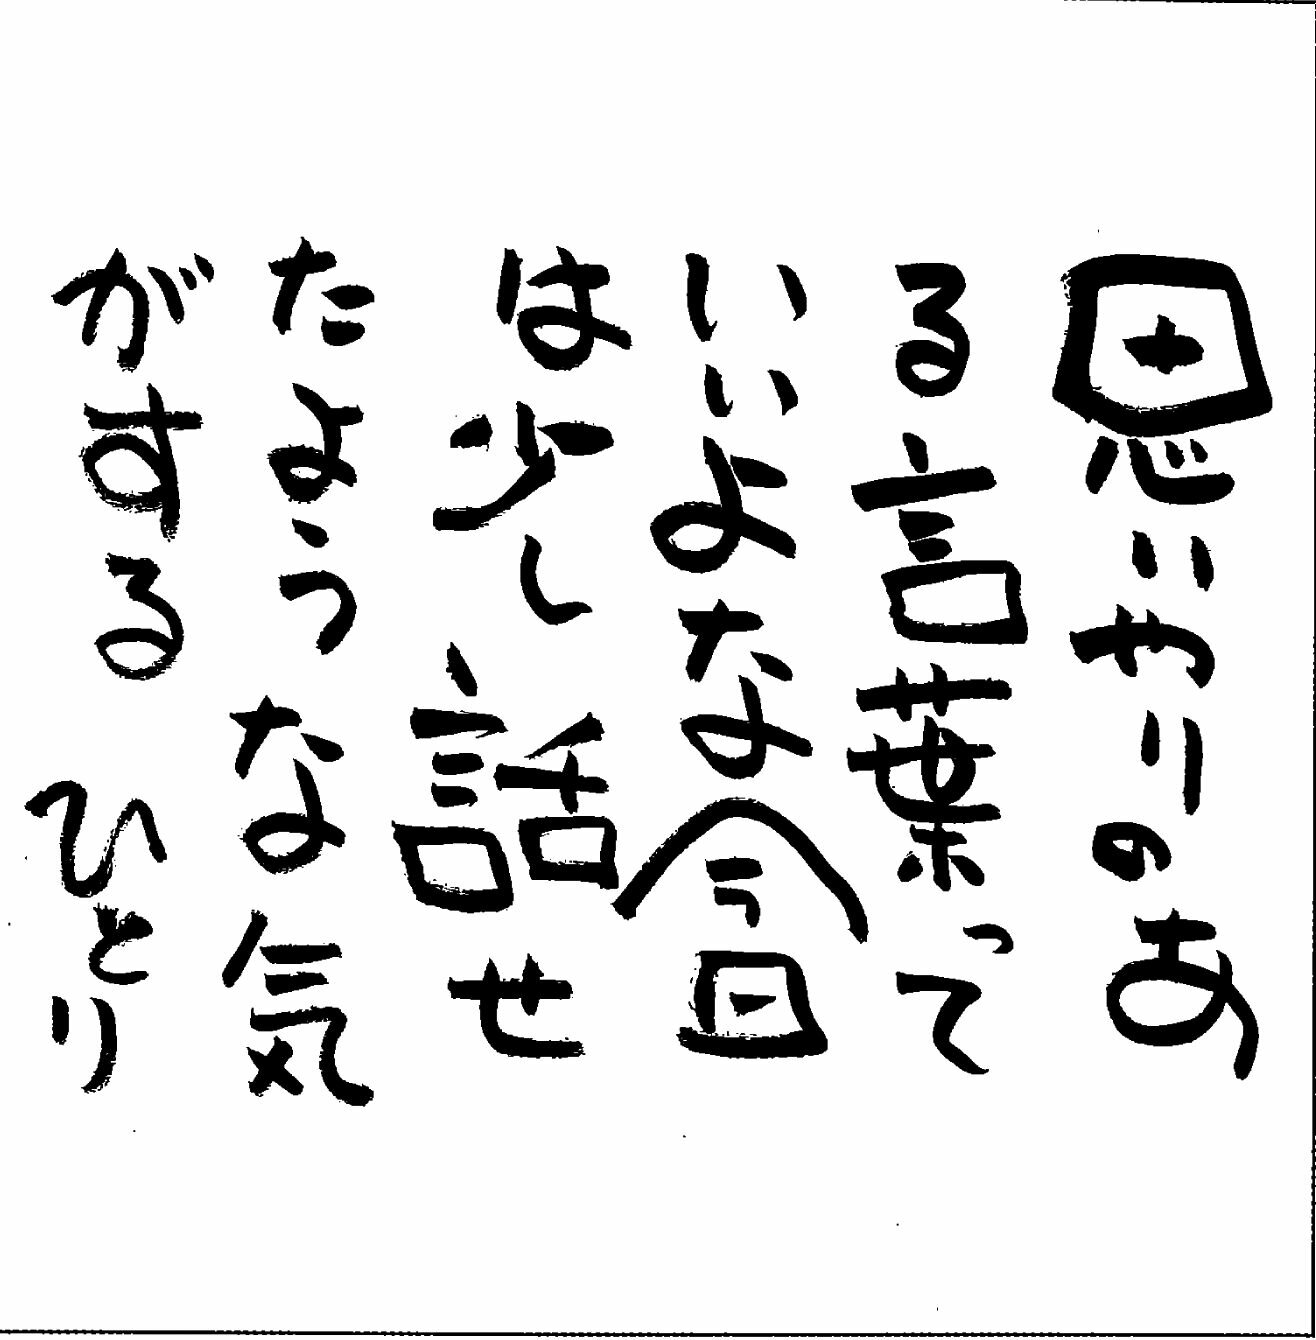 思いやりのあ
る言葉って
いいよな今日
は少し話せ
たような気
がする ひとり